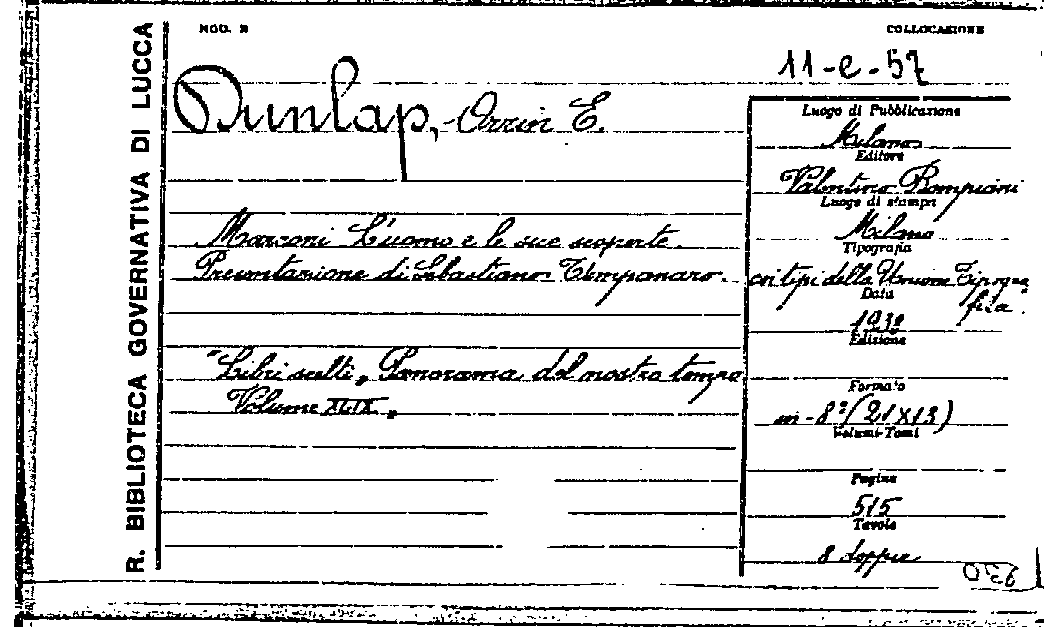 R. BIBLIOTECA GOVERNATIVA DI LUCCA
MOD. B
COLLOCAZIONE
11-e-57
Dunlap, Orrin E.
Marconi L'uomo e le sue scoperte.
Presentazione di Sebastiano Timpanaro.
"Libri scelti, Panorama del nostro tempo
Volume XLIX"
Luogo di Pubblicazione
Milano
Editore
Valentino Bompiani
Luogo di stampa
Milano
Tipografia
coi tipi della Unione Tipogra
fica.
Data
Edizione
Formato
in-8° (21x13)
Volumi-Tomi
Pagine
515
Tavole
8 doppie